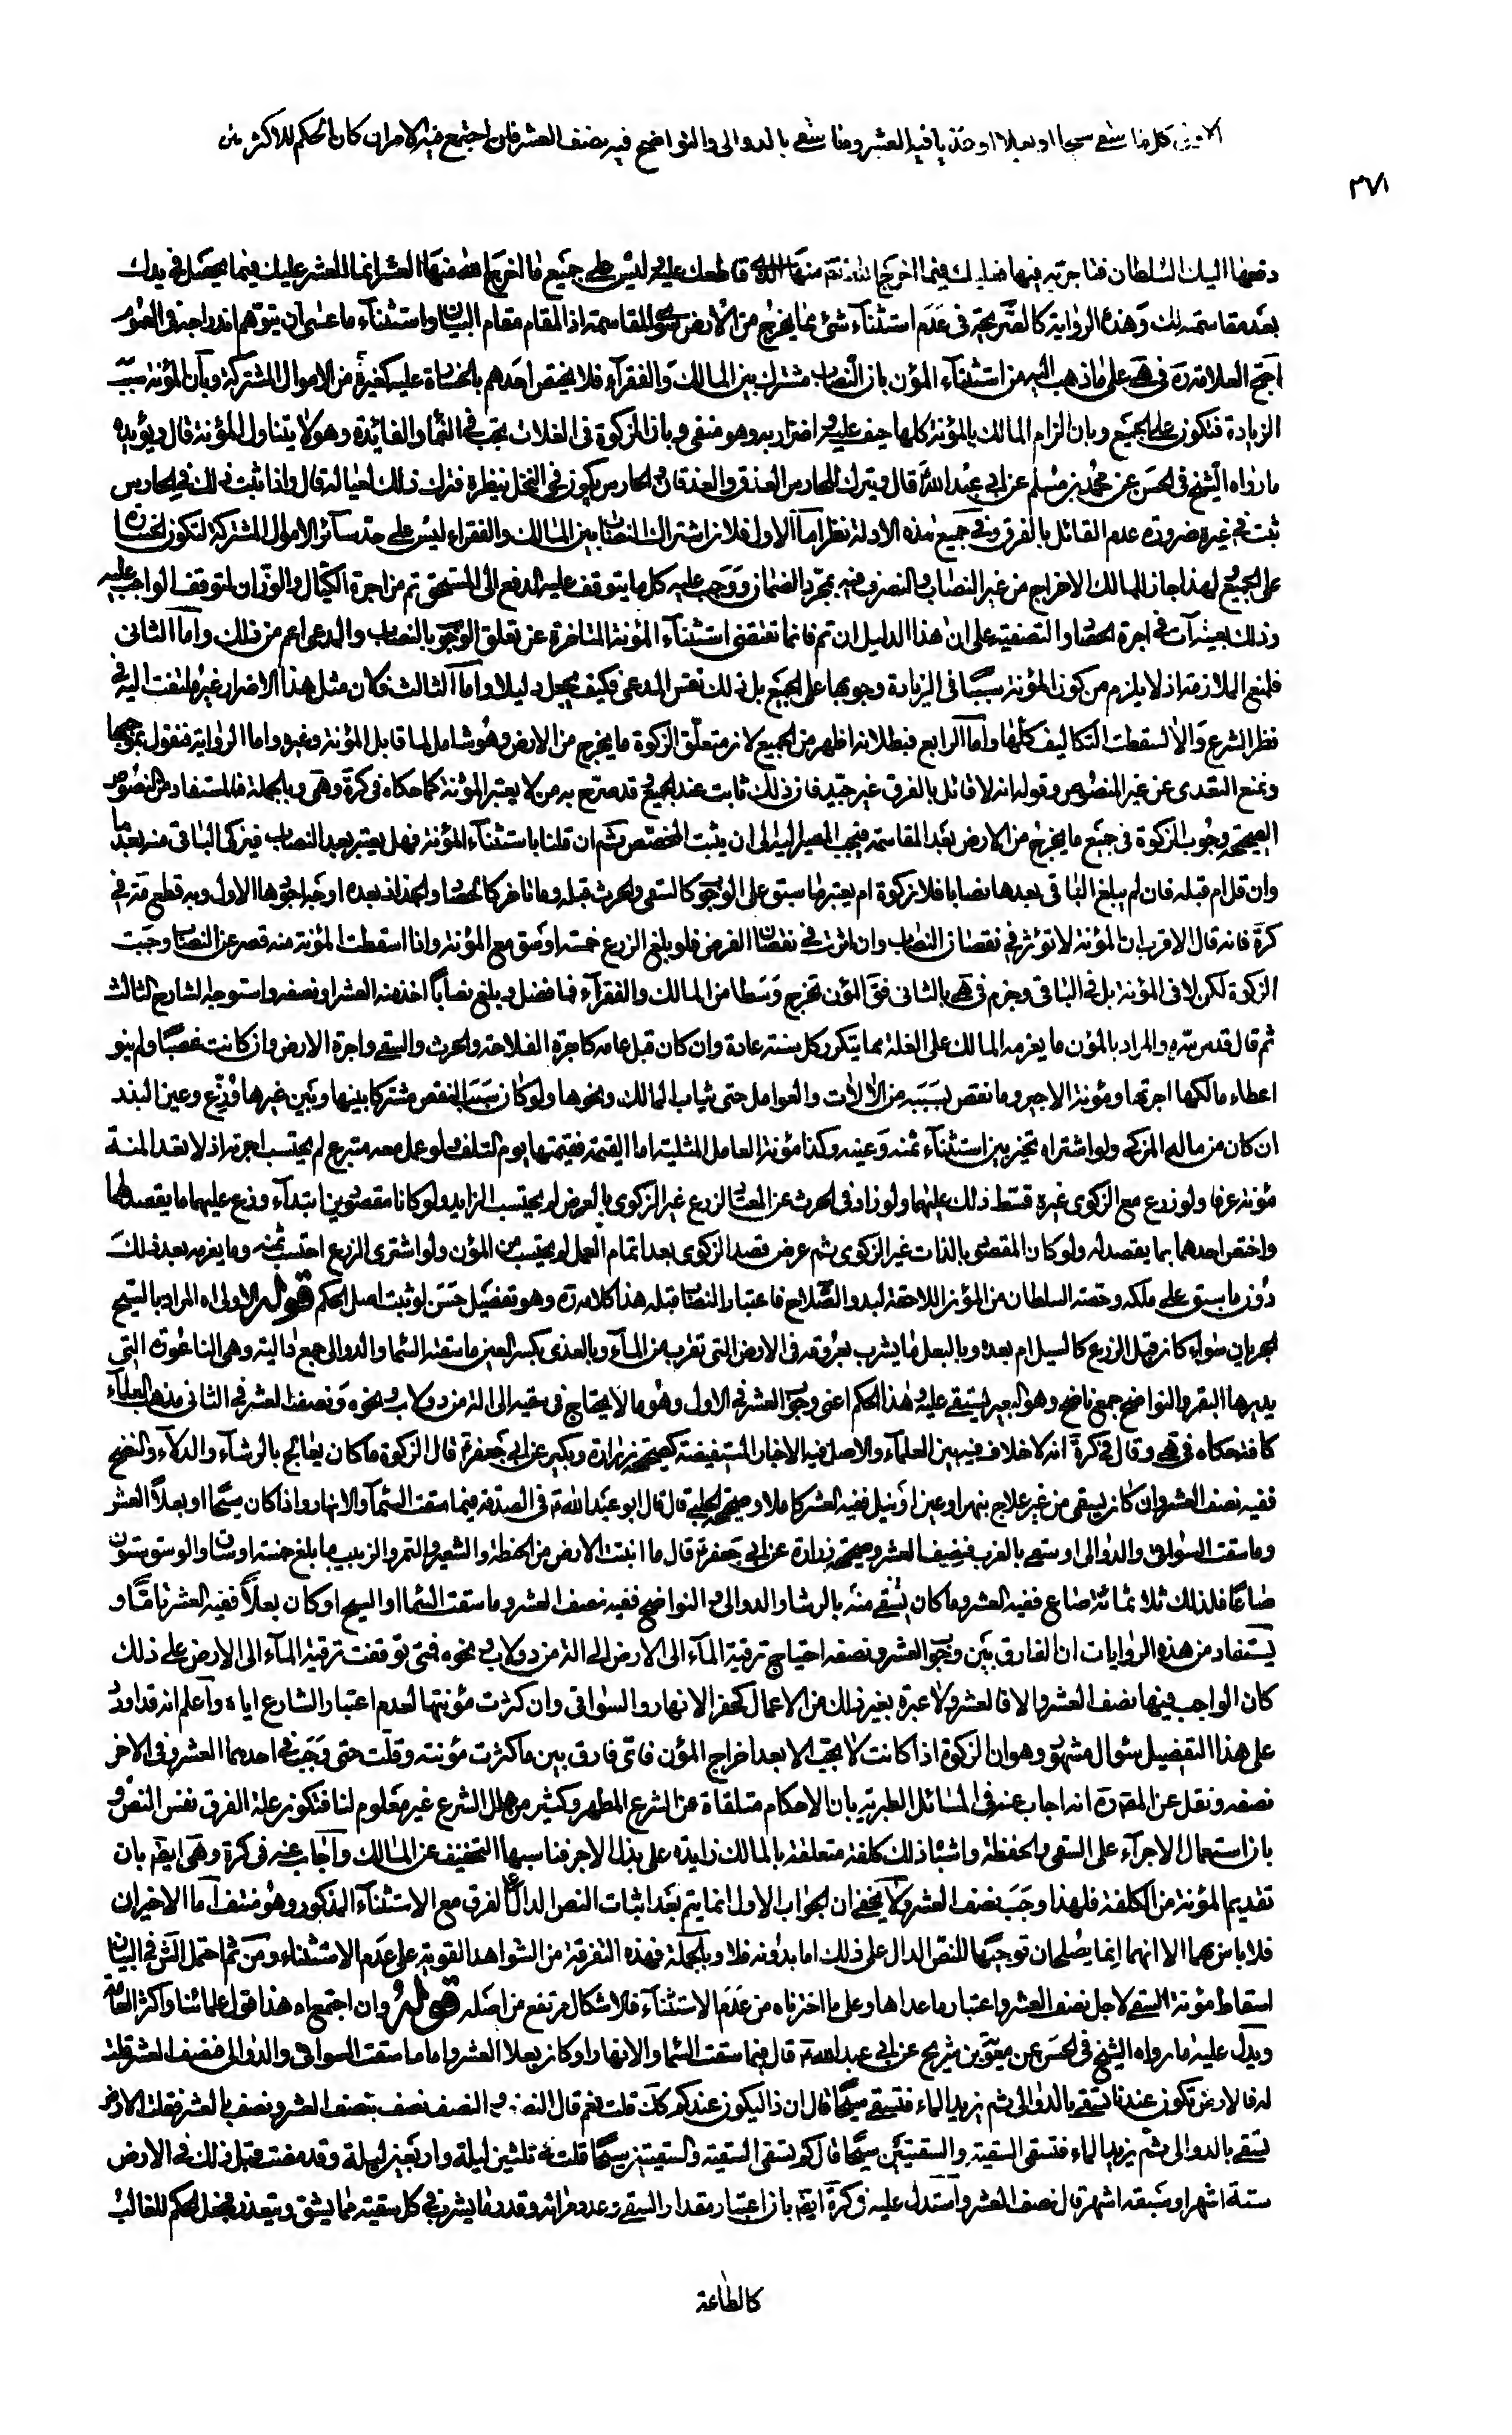 كل ما سقي سيحا او بعلا او عذيا ففيه العشر وما سقي بالدوالى والنواضح فيه نصف العشر فان اجتمع فيه الامران كان الحكم للاكثر فان
٣٧١
دفعها اليك السلطان فما حرثته فيها فعليك فيما اخرج الله منها الذى قاطعك عليه وليس على جميع ما اخرج الله منها العشر انما العشر عليك فيما يحصل فى يدك
بعد مقاسمته لك وهذه الرواية كالصريحة فى عدم استثناء شئ مما يخرج من الارض سوى المقاسمة اذ المقام مقام البيان واستثناء ما عسى ان يتوهم اندراجه فى العموم
احتج العلامة ره فى هى على ما ذهب اليه من استثناء المؤن بان النصاب مشترك بين المالك والفقراء فلا يختص احدهم بالخسارة عليه كغيره من الاموال المشتركة وبان المؤنة سبب
الزيادة فتكون على الجميع وبان الزام المالك بالمؤنة كلها حيف عليه واضرار به وهو منفى وبان الزكوة فى الغلات تجب فى النماء والفائدة وهو لا يتناول المؤنة قال ويؤيده
ما رواه الشيخ فى الحسن عن محمد بن مسلم عن ابى عبد الله قال ويترك للحارس العذق والعذقان والحارس يكون فى النخل ينظره فيترك ذلك لعياله قال واذا ثبت ذلك فى الحارس
ثبت فى غيره ضرورة عدم القائل بالفرق وفى جميع هذه الادلة نظر اما الاول فلان اشتراك النصاب بين المالك والفقراء ليس على حد سائر الاموال المشتركة لتكون الخسارة
على الجميع ولهذا جاز للمالك الاخراج من غير النصاب والتصرف فيه بمجرد الضمان ووجب عليه كل ما يتوقف عليه الدفع الى المستحق ثم من اجرة الكيال والوزان لتوقف الواجب عليه
وذلك بعينه آت فى اجرة الحصاد والتصفية على ان هذا الدليل ان تم فانما يقتضى استثناء المؤنة المتاخرة عن تعلق الوجوب بالنصاب والمدعى اعم من ذلك واما الثانى
فلمنع الملازمة اذ لا يلزم من كون المؤنة سببا فى الزيادة وجوبها على الجميع بل ذلك نفس المدعى فكيف يجعل دليلا واما الثالث فلان مثل هذا الاضرار غير ملتفت اليه فى
نظر الشرع والا لسقطت التكاليف كلها واما الرابع فبطلانه اظهر من الجميع لان متعلق الزكوة ما يخرج من الارض وهو شامل لما قابل المؤنة وغيره واما الرواية فنقول بموجبها
ونمنع التعدى عن غير المنصوص وقوله انه لا قائل بالفرق غير جيد فان ذلك ثابت عند الجميع قد صرح به من لا يعتبر المؤنة كما حكاه فى كرة وهى وبالجملة فالمستفاد من النصوص
الصحيحة وجوب الزكوة فى جميع ما يخرج من الارض بعد المقاسمة فيجب المصير اليه الى ان يثبت المخصص ثم ان قلنا باستثناء المؤنة فهل يعتبر بعد النصاب فيزكى الباقى منه بعدها
وان قل ام قبله فان لم يبلغ الباقى بعدها نصابا فلا زكوة ام يعتبر ما سبق على الوجوب كالسقى والحرث قبله وما تاخر كالحصاد والجذاذ بعده اوجه اجودها الاول وبه قطع مة فى
كرة فانه قال الاقرب ان المؤنة لا تؤثر فى نقصان النصاب وان اثرت فى نقصان الفرض فلو بلغ الزرع خمسة اوسق مع المؤنة واذا اسقطت المؤنة منه قصر عن النصاب وجبت
الزكوة لكن لا فى المؤنة بل فى الباقى وجزم فى هى بالثانى فقال المؤن تخرج وسطا من المالك والفقراء فما فضل وبلغ نصابا اخذ منه العشر او نصفه واستوجه الشارح الثالث
ثم قال قدس سره والمراد بالمؤن ما يغرمه المالك على الغلة مما يتكرر كل سنة عادة وان كان قبل عامه كاجرة الفلاحة والحرث والسقى واجرة الارض وان كانت غصبا ولم ينو
اعطاء مالكها اجرتها ومؤنة الاجير وما نقص بسببه من الالات والعوامل حتى ثياب المالك ونحوها ولو كان سبب النقص مشتركا بينها وبين غيرها وزع وعين البذر
ان كان من ماله المزكى ولو اشتراه تخير بين استثناء ثمنه وعينه وكذا مؤنة العامل المثلية اما القيمة فقيمتها يوم التلف ولو عمل معه متبرع لم يحتسب اجرته اذ لا تعد المنة
مؤنة عرفا ولو زرع مع الزكوى غيره قسط ذلك عليهما ولو زاد فى الحرث عن المعتاد لزرع غير الزكوى بالعرض لم يحتسب الزايد ولو كانا مقصودين ابتداء وزع عليهما ما يقصد لهما
واختص احدهما بما يقصد له ولو كان المقصود بالذات غير الزكوى ثم عرض قصد الزكوى بعد اتمام العمل لم يحتسب من المؤن ولو اشترى الزرع احتسب ثمنه وما يغرمه بعد ذلك
دون ما سبق على ملكه وحصة السلطان من المؤن اللاحقة لبدو الصلاح فاعتبار النصاب قبله هذا كلامه ره وهو تفصيل حسن لو ثبت اصل الحكم قوله الاولى اه المراد بالسيح
الجريان سواء كان قبل الزرع كالسيل ام بعده وبالبعل ما يشرب بعروقه فى الارض التى تقرب من الماء وبالعذى بكسر العين ما سقته السماء والدوالى جمع دالية وهى الناعورة التى
يديرها البقر والنواضح جمع ناضح وهو البعير يستقى عليه وهذا الحكم اعنى وجوب العشر فى الاول وهو ما لا يحتاج فى سقيه الى الة من دولاب ونحوه ونصف العشر فى الثانى مذهب العلماء
كافة حكاه فى هى وقال فى كرة انه لا خلاف فيه بين العلماء والاصل فيه الاخبار المستفيضة كصحيحة زرارة وبكير عن ابى جعفر ع قال الزكوة ما كان يعالج بالرشاء والدلاء والنضح
ففيه نصف العشر وان كان يسقى من غير علاج بنهر او عين او نيل ففيه العشر كاملا وصحيحة الحلبى قال قال ابو عبد الله ع فى الصدقة فيما سقت السماء والانهار واذا كان سيحا او بعلا العشر
وما سقت السوانى والدوالى او سقى بالغرب فنصف العشر وصحيحة زرارة عن ابى جعفر ع قال ما انبتت الارض من الحنطة والشعير والتمر والزبيب ما بلغ خمسة اوساق والوسق ستون
صاعا فذلك ثلاثمائة صاع ففيه العشر وما كان يسقى منه بالرشا والدوالى والنواضح ففيه نصف العشر وما سقت السماء او السيح او كان بعلا ففيه العشر تاما و
يستفاد من هذه الروايات ان الفارق بين وجوب العشر ونصفه احتياج ترقية الماء الى الارض الى الة من دولاب ونحوه فمتى توقفت ترقية الماء الى الارض على ذلك
كان الواجب فيها نصف العشر والا فالعشر ولا عبرة بغير ذلك من الاعمال كحفر الانهار والسواقى وان كثرت مؤنتها لعدم اعتبار الشارع اياه واعلم انه قد اورد
على هذا التفصيل سؤال مشهور وهو ان الزكوة اذا كانت لا تجب الا بعد اخراج المؤن فاى فارق بين ما كثرت مؤنته وقلت حتى وجبت فى احدهما العشر وفى الاخر
نصفه ونقل عن المص ره انه اجاب عنه فى المسائل الطبرية بان الاحكام متلقاة من الشرع المطهر وكثير من علل الشرع غير معلوم لنا فتكون علة الفرق نفس النص و
بان استعمال الاجراء على السقى والحفظة واشباه ذلك كلفة متعلقة بالمالك زايدة على بذل الاجر فناسبها التخفيف عن المالك واجاب عنه فى كرة وهى ايضا بان
تقديم المؤنة من الكلفة فلهذا وجب نصف العشر ولا يخفى ان الجواب الاول انما يتم بعد اثبات النص الدال على الفرق مع الاستثناء المذكور وهو منتف اما الاخيران
فلا باس بهما الا انهما انما يصلحان توجيها للنص الدال على ذلك اما بدونه فلا وبالجملة فهذه التفرقة من الشواهد القوية على عدم الاستثناء ومن ثم احتمل الش فى البيان
اسقاط مؤنة السقى لاجل نصف العشر واعتبار ما عداها وعلى ما اخترناه من عدم الاستثناء فالاشكال مرتفع من اصله قوله وان اجتمع اه هذا قول علمائنا واكثر العامة
ويدل عليه ما رواه الشيخ فى الحسن عن معوية بن شريح عن ابى عبد الله ع قال فيما سقت السماء والانهار او كان بعلا العشر واما ما سقت السوانى والدوالى فنصف العشر قلت
له فالارض تكون عندنا تسقى بالدوالى ثم يزيد الماء فتسقى سيحا قال ان ذا ليكون عندكم كك قلت نعم قال النصف والنصف نصف بنصف العشر ونصف بالعشر فقلت الارض
تسقى بالدوالى ثم يزيد الماء فتسقى السقية والسقيتين سيحا قال كم تسقى السقية والسقيتين سيحا قلت فى ثلثين ليلة واربعين ليلة وقد مضت قبل ذلك فى الارض
ستة اشهر او سبعة اشهر قال نصف العشر واستدل عليه فى كرة ايضا بان اعتبار مقدار السقى وعدد مراته وقدر ما يشرب فى كل سقية مما يشق ويتعذر فجعل الحكم للغالب
كالطاعة